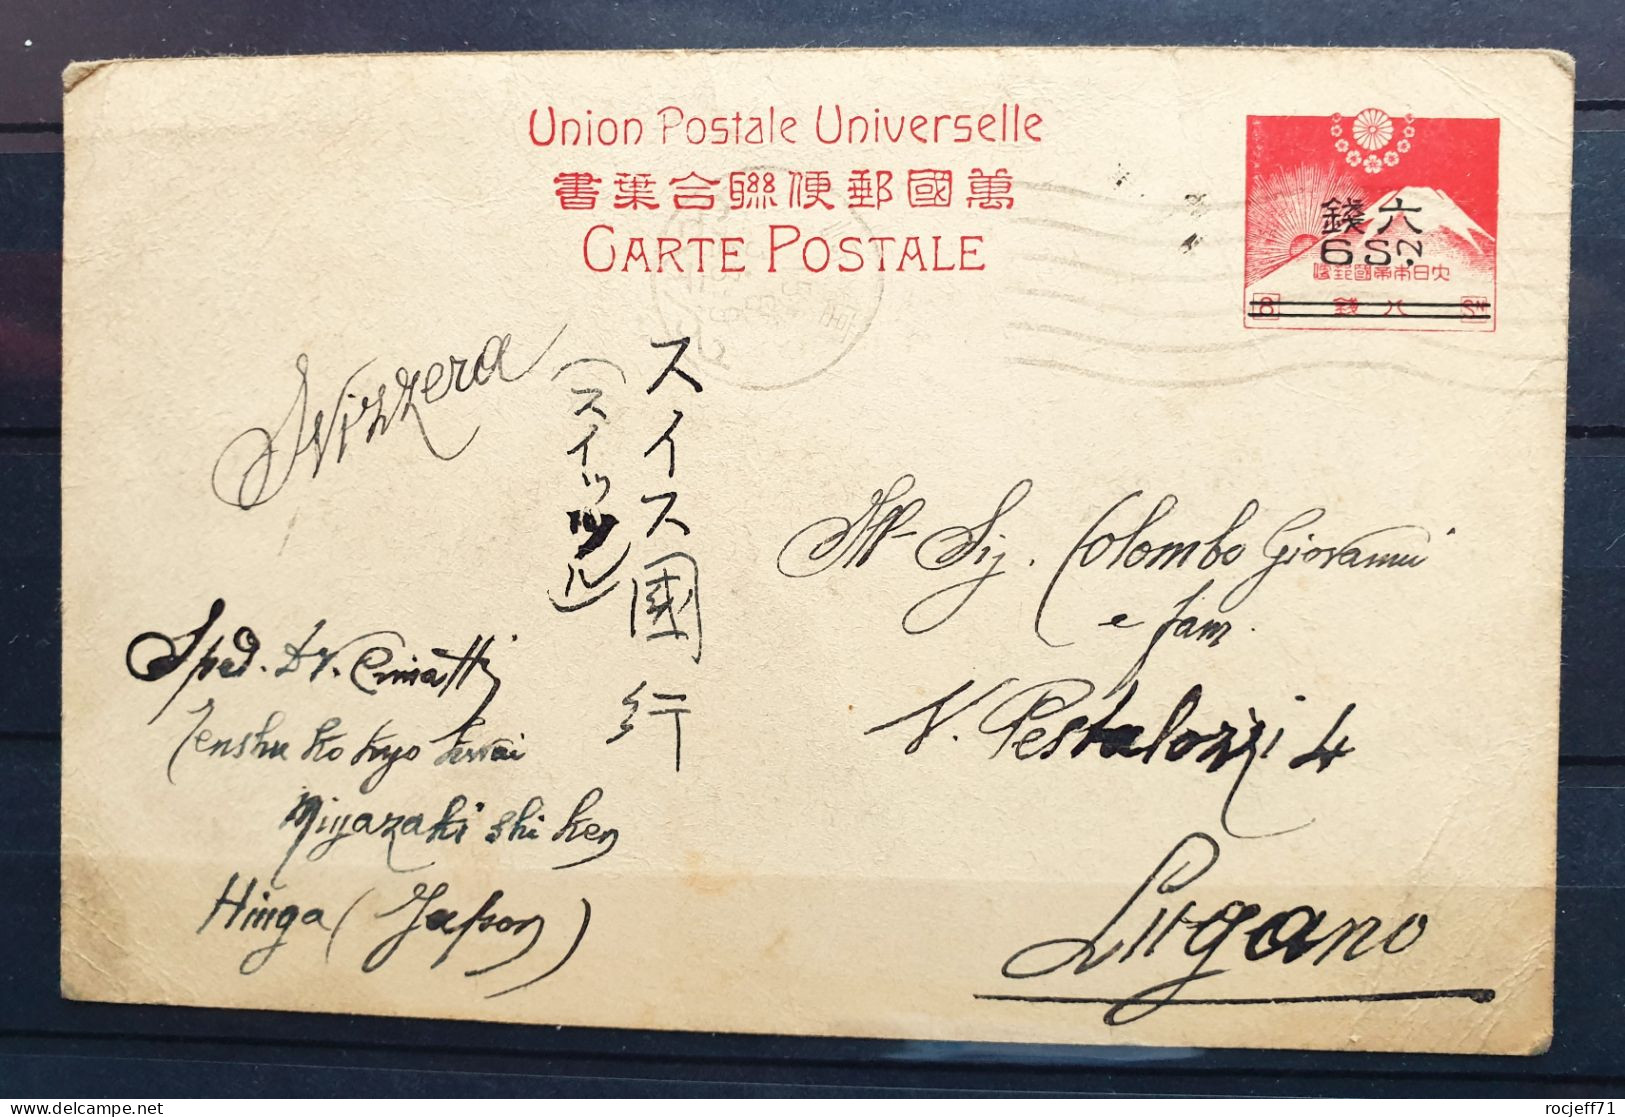 Union Postale Universelle
萬國郵便聯合葉書
CARTE POSTALE
六錢
6 Sɴ
大日本帝國郵便
8 八錢 Sɴ
Svizzera
スイス國行
Sig. Colombo Giovanni
e fam.
V. Pestalozzi 4
Lugano
Sped. Dr. Cimatti
Tenshu ko kyo kwai
Miyazaki shi ken
Hiuga (Japon)
rocjeff71